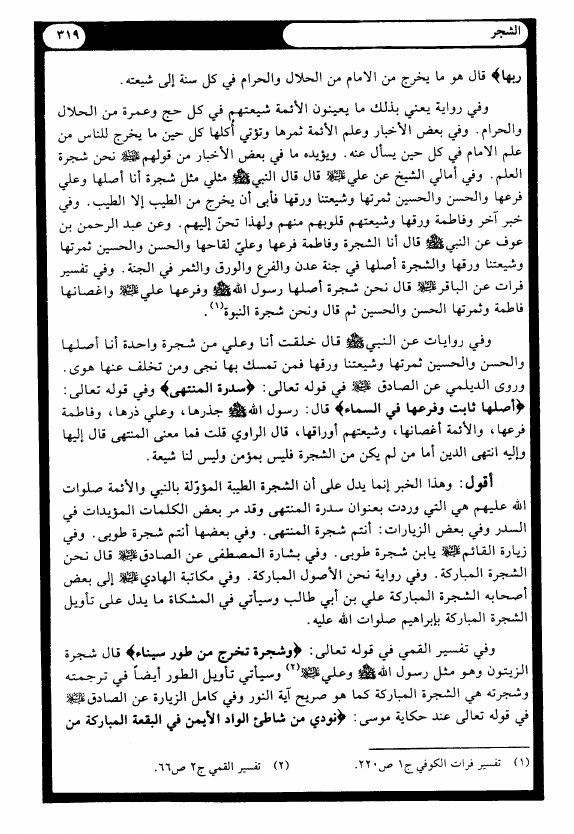 الشجر
٣١٩
ربها﴾ قال هو ما يخرج من الامام من الحلال والحرام في كل سنة إلى شيعته.
وفي رواية يعني بذلك ما يعينون الأئمة شيعتهم في كل حج وعمرة من الحلال
والحرام. وفي بعض الأخبار وعلم الأئمة ثمرها وتؤتي أكلها كل حين ما يخرج للناس من
علم الامام في كل حين يسأل عنه. ويؤيده ما في بعض الأخبار من قولهم ﷺ نحن شجرة
العلم. وفي أمالي الشيخ عن علي ﷺ قال قال النبي ﷺ مثلي مثل شجرة أنا أصلها وعلي
فرعها والحسن والحسين ثمرتها وشيعتنا ورقها فأبى أن يخرج من الطيب إلا الطيب. وفي
خبر آخر وفاطمة ورقها وشيعتهم قلوبهم منهم ولهذا تحنّ إليهم. وعن عبد الرحمن بن
عوف عن النبي ﷺ قال أنا الشجرة وفاطمة فرعها وعليّ لقاحها والحسن والحسين ثمرتها
وشيعتنا ورقها والشجرة أصلها في جنة عدن والفرع والورق والثمر في الجنة. وفي تفسير
فرات عن الباقر ﷺ قال نحن شجرة أصلها رسول الله ﷺ وفرعها علي ﷺ واغصانها
فاطمة وثمرتها الحسن والحسين ثم قال ونحن شجرة النبوة(١).
وفي روايات عن النبي ﷺ قال خلقت أنا وعلي من شجرة واحدة أنا أصلها
والحسن والحسين ثمرتها وشيعتنا ورقها فمن تمسك بها نجى ومن تخلف عنها هوى.
وروى الديلمي عن الصادق ﷺ في قوله تعالى: ﴿سدرة المنتهى﴾ وفي قوله تعالى:
﴿أصلها ثابت وفرعها في السماء﴾ قال: رسول الله ﷺ جذرها، وعلي ذرها، وفاطمة
فرعها، والأئمة أغصانها، وشيعتهم أوراقها، قال الراوي قلت فما معنى المنتهى قال إليها
وإليه انتهى الدين أما من لم يكن من الشجرة فليس بمؤمن وليس لنا شيعة.
أقول: وهذا الخبر إنما يدل على أن الشجرة الطيبة المؤوّلة بالنبي والأئمة صلوات
الله عليهم هي التي وردت بعنوان سدرة المنتهى وقد مر بعض الكلمات المؤيدات في
السدر وفي بعض الزيارات: أنتم شجرة المنتهى. وفي بعضها أنتم شجرة طوبى. وفي
زيارة القائم ﷺ يابن شجرة طوبى. وفي بشارة المصطفى عن الصادق ﷺ قال نحن
الشجرة المباركة. وفي رواية نحن الأصول المباركة. وفي مكاتبة الهادي ﷺ إلى بعض
أصحابه الشجرة المباركة علي بن أبي طالب وسيأتي في المشكاة ما يدل على تأويل
الشجرة المباركة بإبراهيم صلوات الله عليه.
وفي تفسير القمي في قوله تعالى: ﴿وشجرة تخرج من طور سيناء﴾ قال شجرة
الزيتون وهو مثل رسول الله ﷺ وعلي ﷺ(٢) وسيأتي تأويل الطور أيضاً في ترجمته
وشجرته هي الشجرة المباركة كما هو صريح آية النور وفي كامل الزيارة عن الصادق ﷺ
في قوله تعالى عند حكاية موسى: ﴿نودي من شاطئ الواد الأيمن في البقعة المباركة من
(١) تفسير فرات الكوفي ج١ ص٢٢٠.
(٢) تفسير القمي ج٢ ص٦٦.